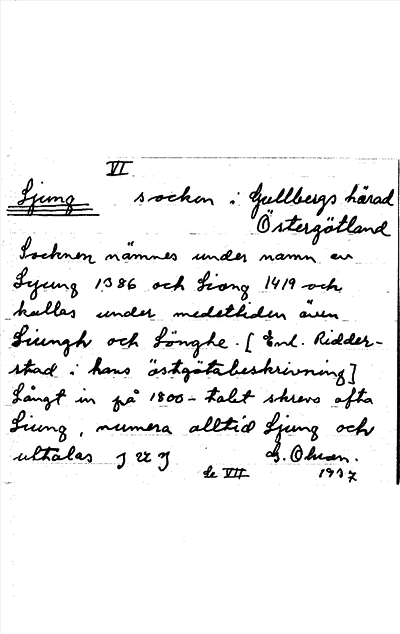 VI
Ljung socken i Gullbergs härad
Östergötland
Socknen nämnes under namn av
Lyung 1386 och Liong 1419 och
kallas under medeltiden även
Liungh och Lönghe. [Enl. Ridder-
stad i hans östgötabeskrivning]
Långt in på 1800-talet skrevs ofta
Liung, numera alltid Ljung och
uttalas
G.
se VII 1937